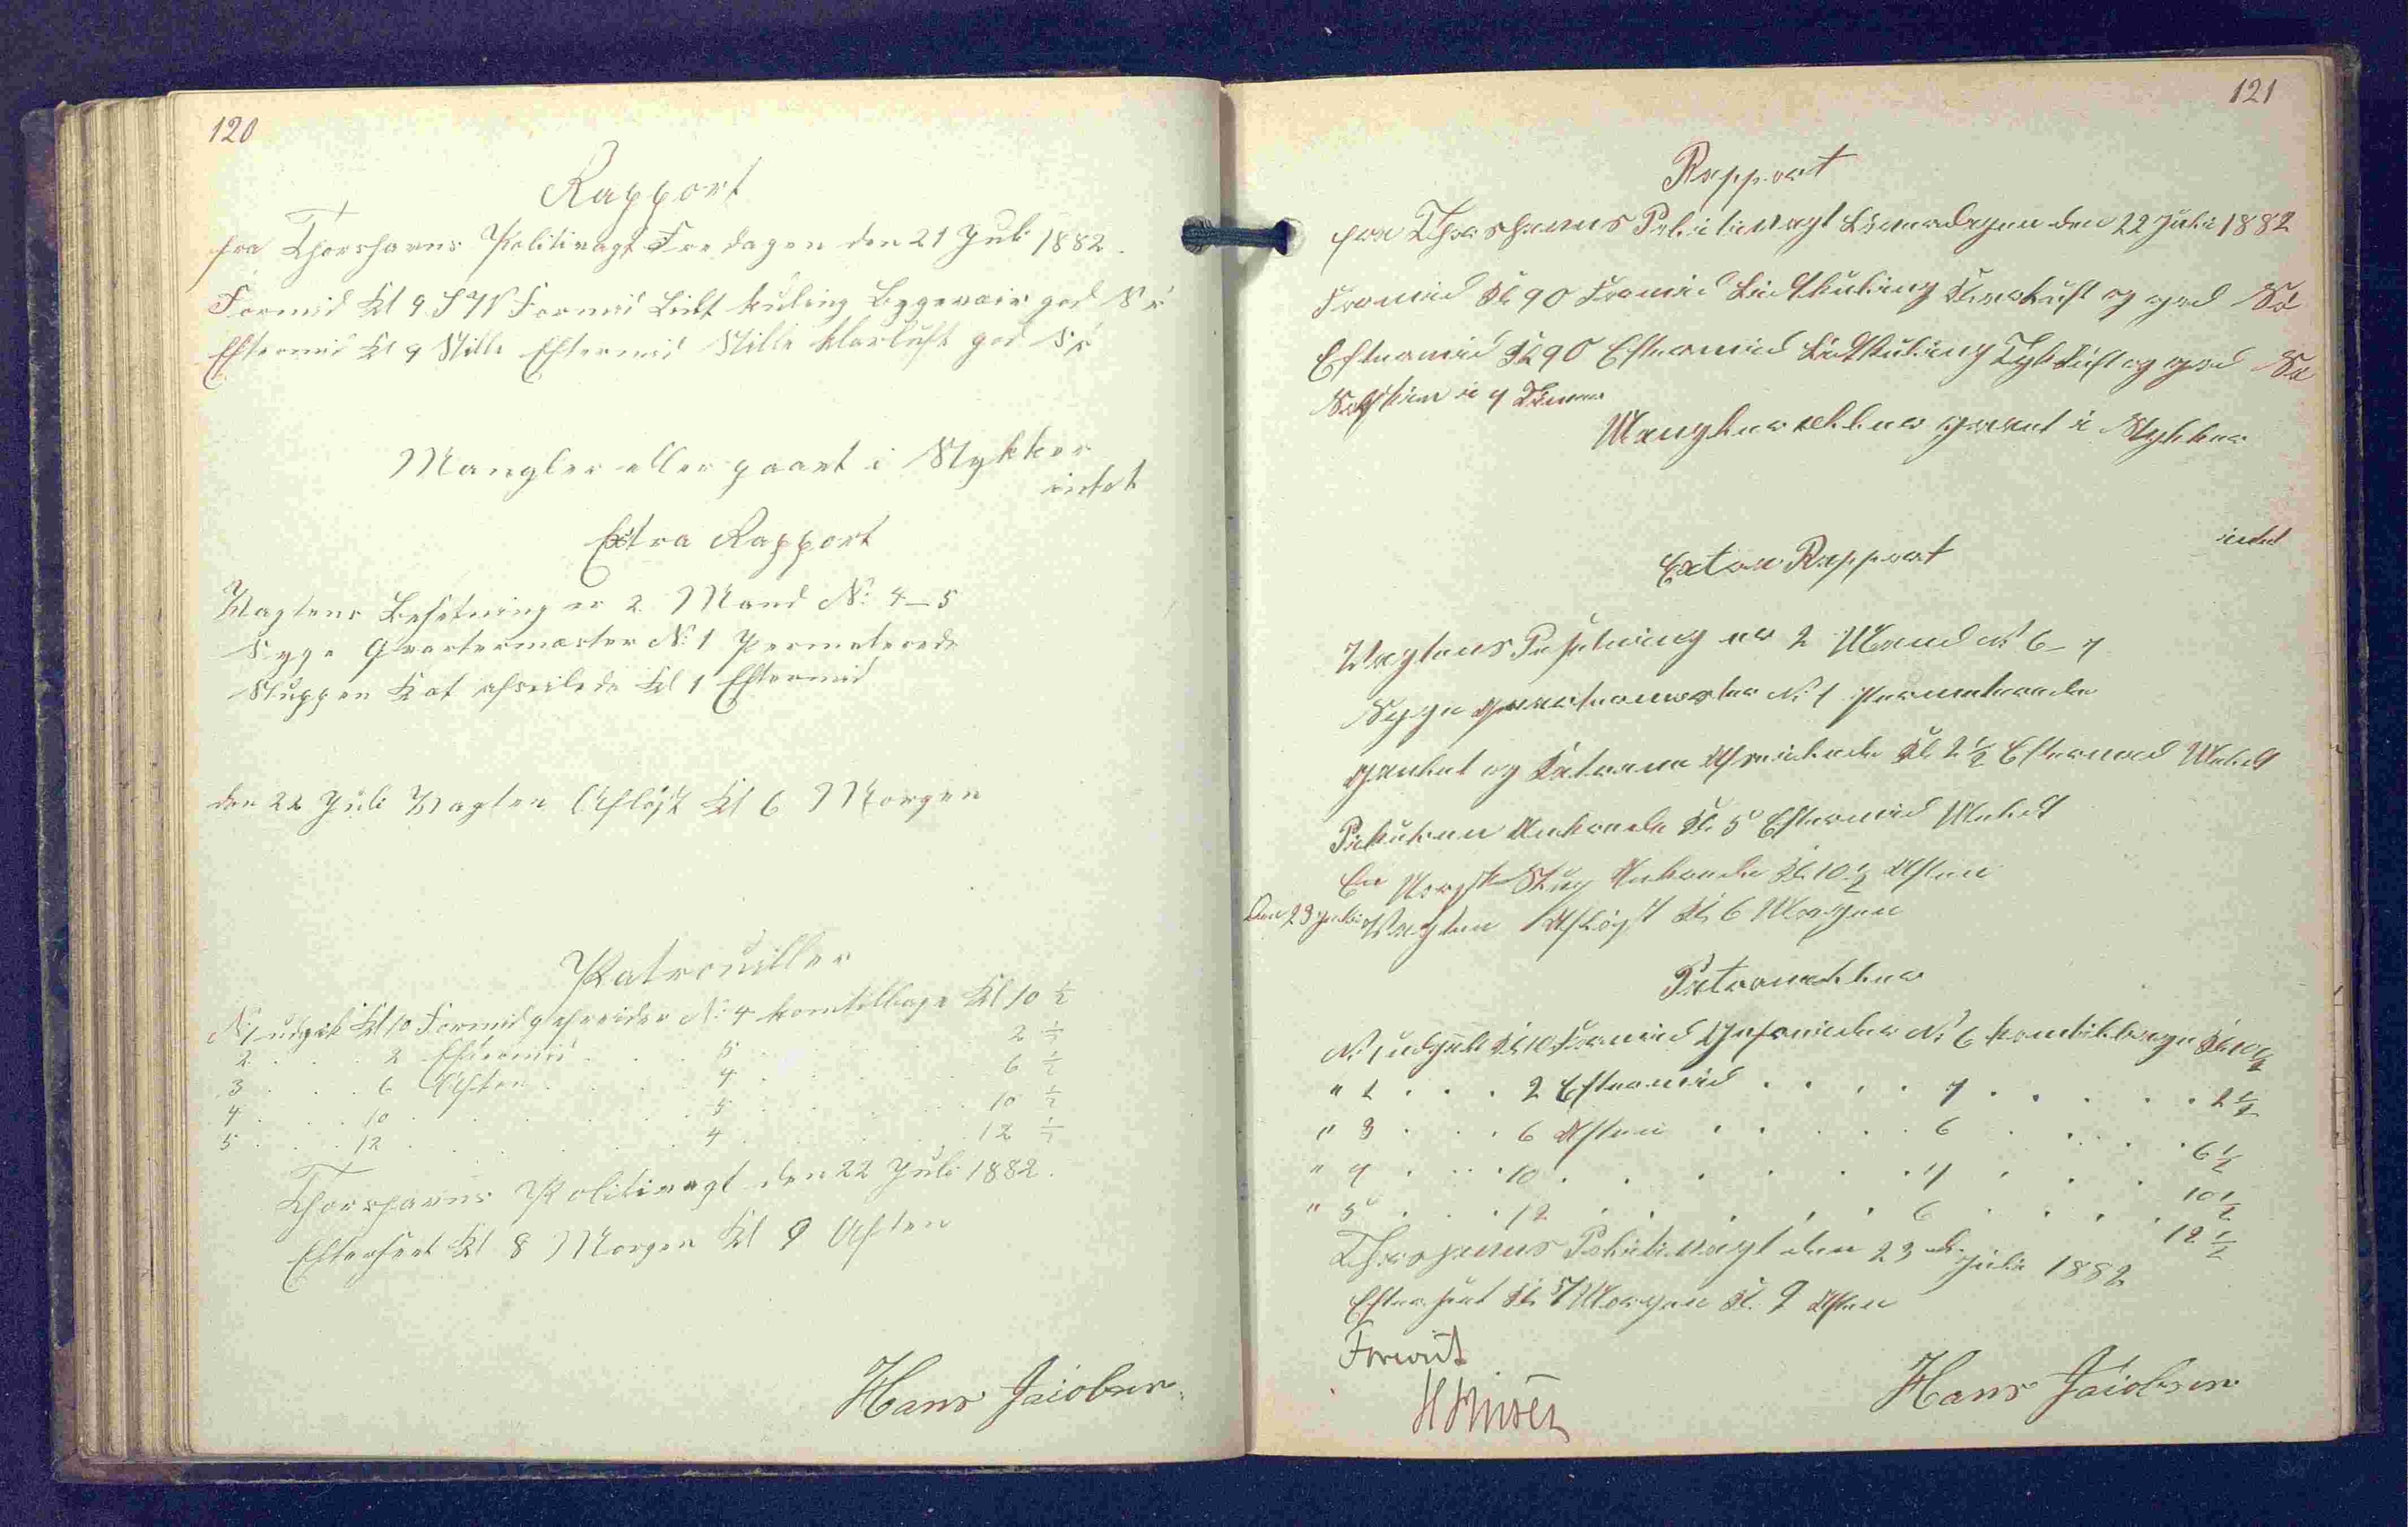 120
Rapport
fra Thorshavns Politivagt Fredagen den 21 Juli 1882.
Formid Kl 9 SW Formid Lidt kuling Bygevær god Sø
Eftermid Kl 9 Stille Eftermid Stille klarluft god Sø
Mangler eller gaaet i Stykker
intet
Extra Rapport
Vagtens Besetning er 2 Mand No 4–5
Syge Qvartermæster No 1 Permeterede
Sluppen Kat afseilede Kl 1 Eftermid
den 22 Juli Vagten Afløst Kl 6 Morgen
Patrouiller
No 1 udgik Kl 10 Formid gefreider No 4 kom tilbage Kl 10 ½
2 . . . 2 Eftermid . . . 5 . . . 2 ½
3 . . . 6 Aften . . . 4 . . . 6 ½
4 . . . 10 . . . 5 . . . 10 ½
5 . . . 12 . . . 4 . . . 12 ½
Thorshavns Politivagt den 22 Juli 1882.
Efterseet Kl 8 Morgen Kl 9 Aften
Hans Jacobsen
121
Rapport
fra Thorshavns Politivagt Løverdagen den 22 Juli 1882
Formid Kl 9 O Formid Lidt kuling Klarluft og god Sø
Eftermid Kl 9 O Eftermid Lidt kuling Tyk Luft og god Sø
Solskin i 4 Timer
Mangler eller gaaet i Stykker
intet
Extra Rapport
Vagtens Besetning er 2 Mand No 6–7
Syge Qvartermester No 1 Permeterede
og Afseilede Kl 2 ½ Eftermid
Ankrede Kl 5 Eftermid
En Norsk Slup Ankrede Kl 10 ½ Aften
Den 23 Juli Vagten Afløst Kl 6 Morgen
Patrouiller
No 1 udgik Kl 10 Formid Gefreider No 6 kom tilbage Kl 10 ½
" 2 . . . 2 Eftermid . . . . 7 . . . . . . 2 ½
" 3 . . . 6 Aften . . . . . 6 . . . . . 6 ½
" 4 . . . 10 . . . . . . 7 . . . 10 ½
" 5 . . . 12 . . . . . . 6 . . . . 12 ½
Thorshavns Politivagt den 23 d. Juli 1882
Efterseet Kl 7 Morgen Kl. 9 Aften
Forevist
Hans Jacobsen